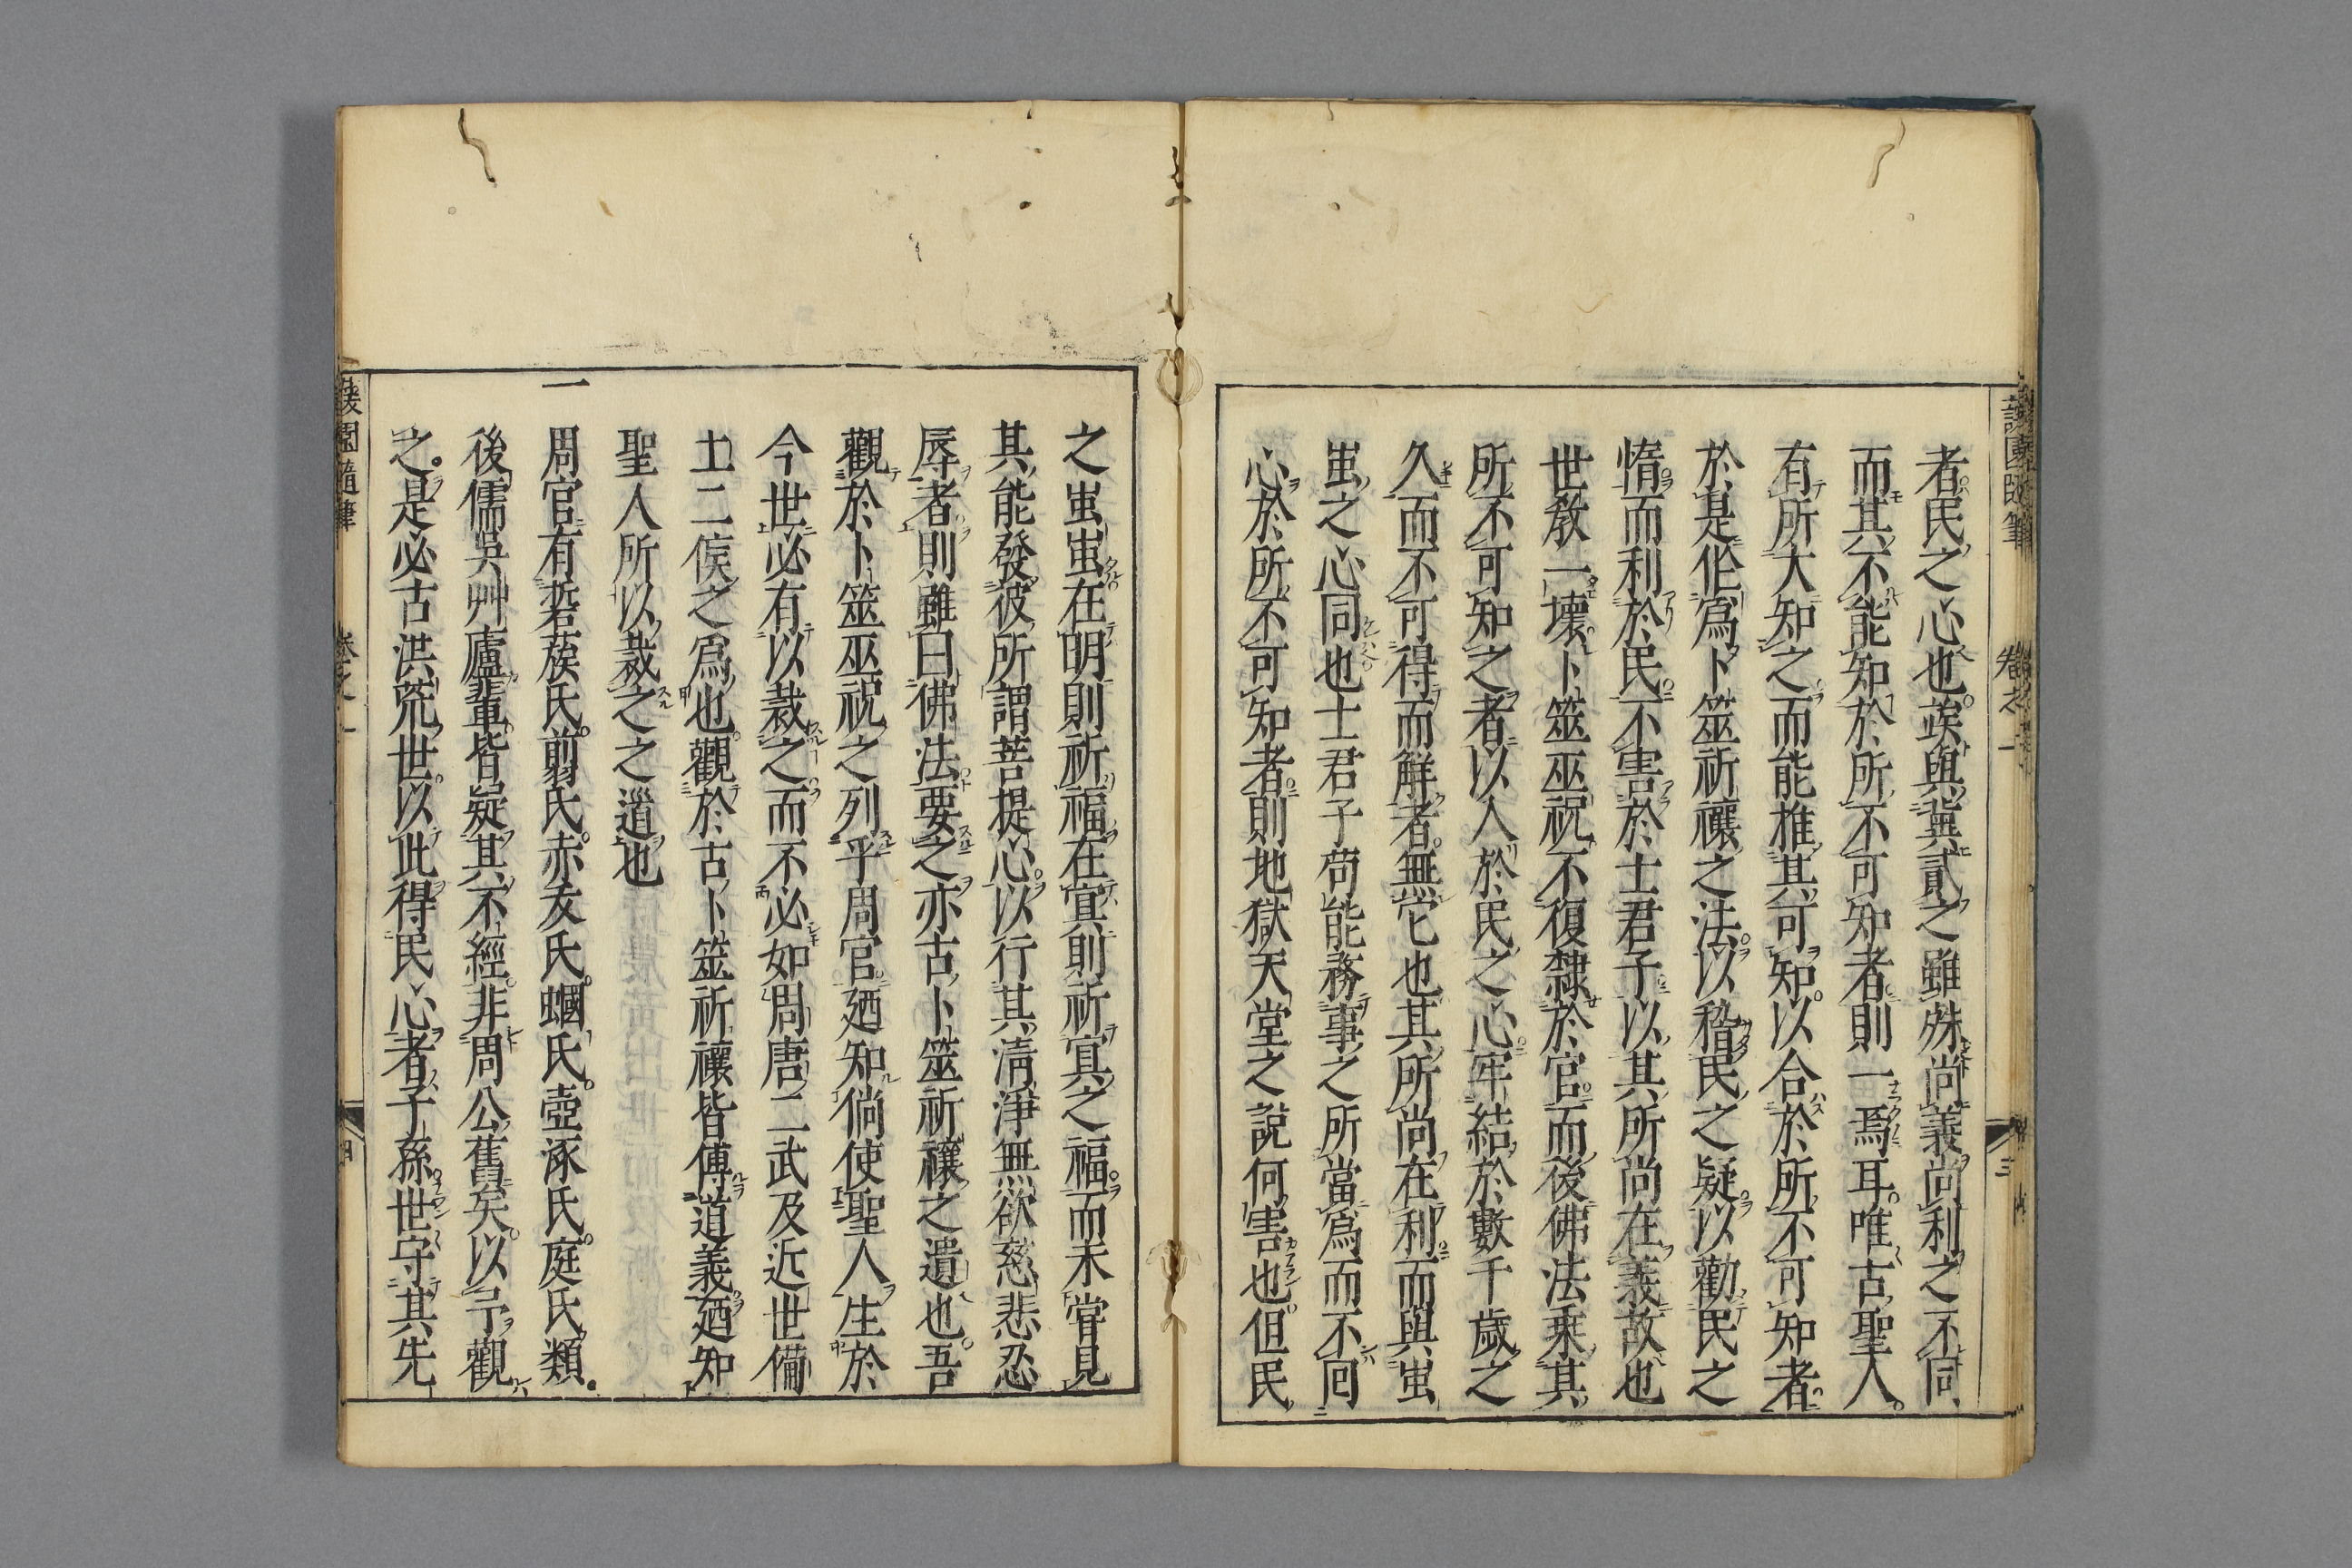 護園隨筆 卷之一 三
者民之心也矣與冀貳之雖殊尚義尚利之不同
而其不能知於所不可知者則一焉耳唯古聖人
有所大知之而能推其可知以合於所不可知者
於是作爲卜筮祈禳之法以稽民之疑以勸民之
惰而利於民不害於士君子以其所尚在義故也
世教一壞卜筮巫祝不復隸於官而後佛法乘其
所不可知之者以入於民之心牢結於數千歲之
久而不可得而解者無它也其所尚在利而與蚩
蚩之心同也士君子苟能務事之所當爲而不回
心於所不可知者則地獄天堂之說何害也但民
之蚩蚩在明則祈福在冥則祈冥之福而未嘗見
其能發彼所謂菩提心以行其清淨無欲慈悲忍
辱者則雖曰佛法要之亦古卜筮祈禳之遺也吾
觀於卜筮巫祝之列乎周官廼知倘使聖人生於
今世必有以裁之而不必如周唐二武及近世備
土二侯之爲也觀於古卜筮祈禳皆傅道義廼知
聖人所以裁之之道也
一
周官有硩蔟氏翦氏赤犮氏蟈氏壺涿氏庭氏類
後儒吳艸廬輩皆疑其不經非周公舊矣以予觀
之是必古洪荒世以此得民心者子孫世守其先
護園隨筆 卷之一 四